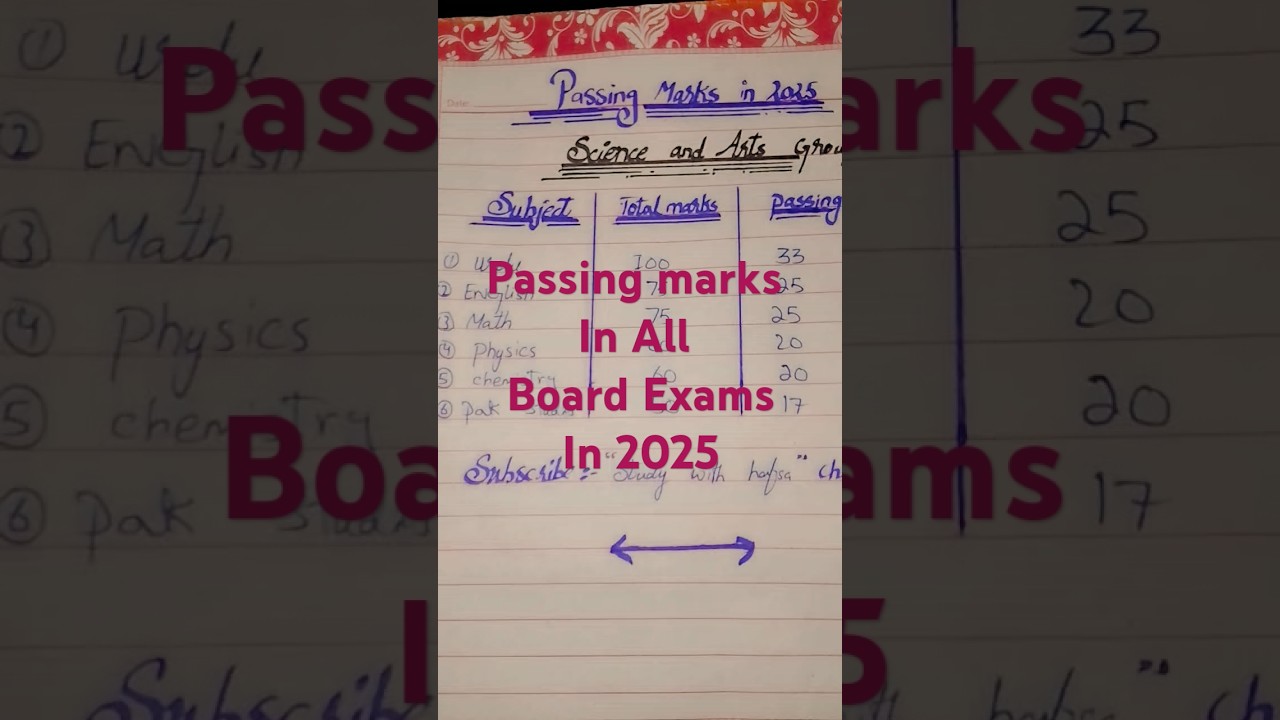 Passing Marks in 2025
Science and Arts Grou
Subject Total marks Passing
① Urdu 100 33
② English 75 25
③ Math 75 25
④ Physics 60 20
⑤ chemistry 60 20
⑥ Pak 17
Subscribe :- "Study with hafsa" ch
Passing marks
In All
Board Exams
In 2025